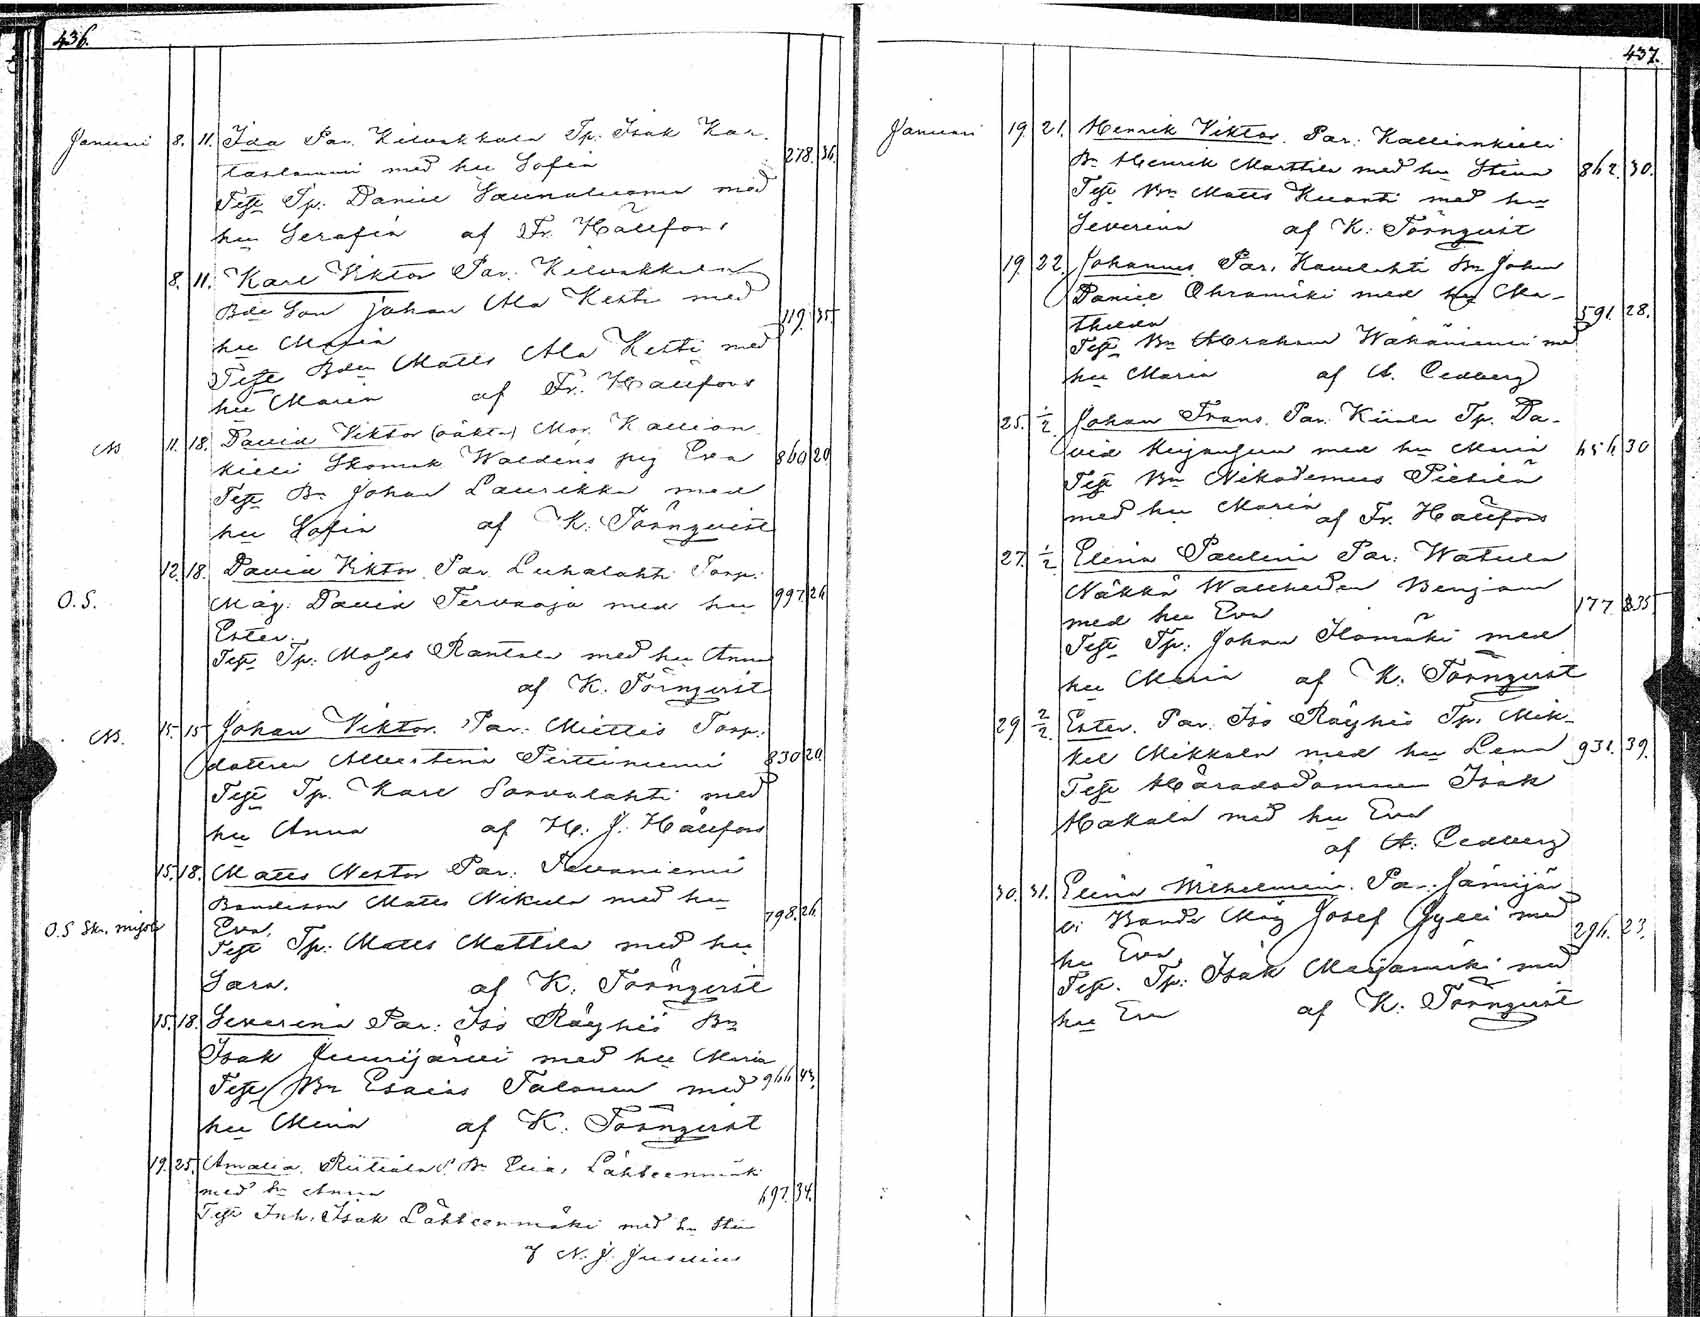 436.
Januari 8. 11. Ida Par. Kilvakkala Tp. Isak Kar-
taslammi med hu Sofia 278. 36.
Test Tp: Daniel Saunaluoma med
hu Serafia af Fr. Hällfors
8. 11. Karl Viktor Par. Kilvakkala
Bde Son Johan Ala Kesti med
hu Maria 119. 35.
Test Bden Matts Ala Kesti med
hu Maria af Fr. Hällfors
11. 18. David Viktor (oäkta) Mor. Kallion
kieli Skomak Waldens pig Eva 860 20
Test Bn Johan Laurikka med
hu Sofia af K. Törnqvist
O.S. 12. 18. David Viktor Par. Luhalahti Torp.
Måg. David Tervaoja med hu 997. 26
Ester.
Test Tp: Moses Rantala med hu Anna
af K. Törnqvist
15. 15 Johan Viktor. Par: Miettis Torp.
dotren Albertina Pirttiniemi 830 20.
Test Tp. Karl Sarvalahti med
hu Anna af H. J. Hällfors
15. 18. Matts Nestor Par: Tevaniemi
Bondeson Matts Nikula med hu
O.S Eva. 798. 26.
Test Tp: Matts Mattila med hu
Sara. af K. Törnqvist
15. 18. Severina Par: Iso Röyhiö Bn
Isak Juurijärvi med hu Maria
Test Bn Esaias Talonen med 966 43.
hu Mina af K. Törnqvist
19. 25. Amalia. Riitiala Bn Elias Lähteenmäki
med hu Anna 697. 34.
Test Inh. Isak Lähteenmäki med hu Stina
af N. J. Juselius
437.
Januari 19 21. Henrik Viktor. Par: Kallionkieli
Bn Henrik Marttila med hu Stina 862. 30.
Test Bn Matts Kuonti med hu
Severina af K. Törnqvist
19 22. Johannes Par. Kauvlahti Bn Johan
Daniel Ohramäki med hu Ma-
thilda 591. 28.
Test Bn Abraham Wähäniemi med
hu Maria af A. Cedberg
25. 1/2 Johan Frans. Par. Kiiala Tp. Da-
vid med hu Maria 656. 30
Test Bn Nikodemus Pietilä
med hu Maria af Fr. Hällfors
27. 1/2 Elina Paulina Par: Watula
Näkkä Wallheden Benjam
med hu Eva 177. 35
Test Tp. Johan Ilomäki med
hu Maria af K. Törnqvist
29 2/2 Ester. Par. Iso Röyhiö Tp. Mik-
kel Mikkola med hu Lena 931. 39.
Test Häradsdomaren Isak
Hakala med hu Eva
af A. Cedberg
30. 31. Elina Wilhelmina. Par. Jämijär-
vi Bonde Måg Josef Gylli med
hu Eva 296. 23.
Test. Tp: Isak Marjamäki med
hu Eva af K. Törnqvist